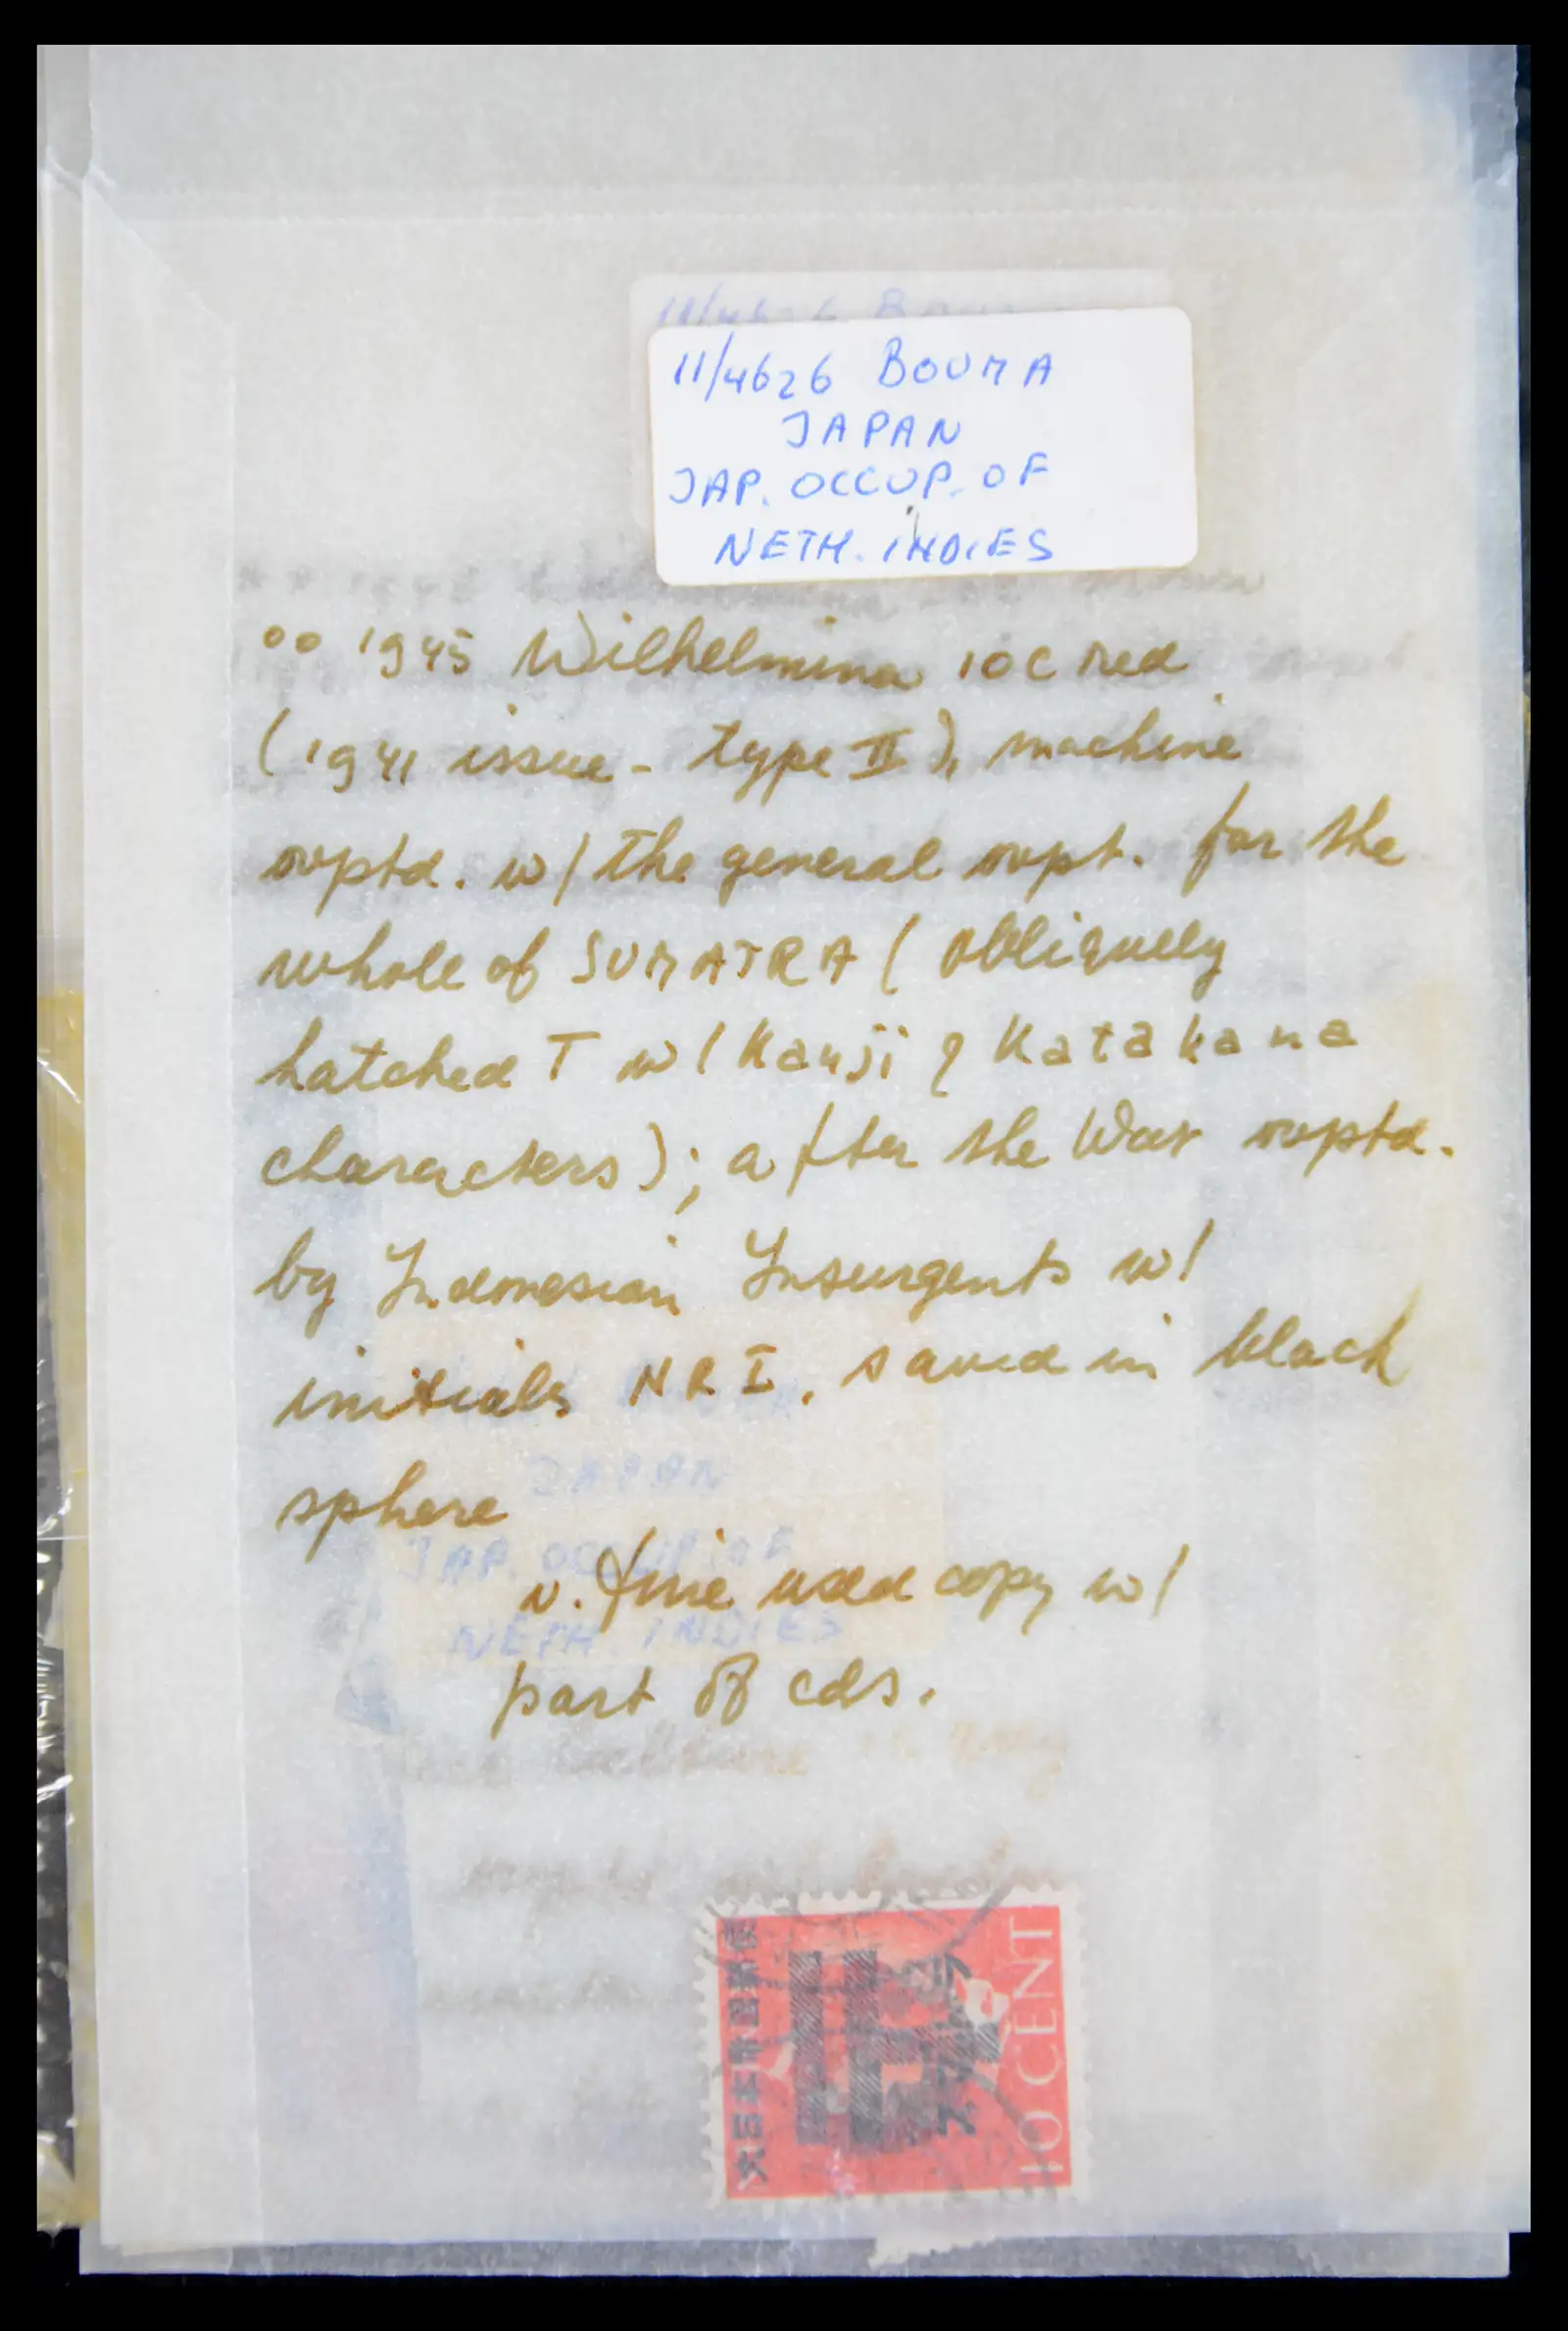 11/4626 BOUMA
JAPAN
JAP. OCCUP. OF
NETH. INDIES
°° 1945 Wilhelmina 10c red
(1941 issue - type II), machine
ovptd. w/ the general ovpt. for the
whole of SUMATRA (obliquely
hatched T w/ Kanji & Katakana
characters); after the War ovptd.
by Indonesian Insurgents w/
initials NRI, saved in black
sphere
v. fine used copy w/
part of cds.
JAPAN
JAP. OCCUP. OF
NETH. INDIES
大日本帝国郵便
スマトラ
10 CENT